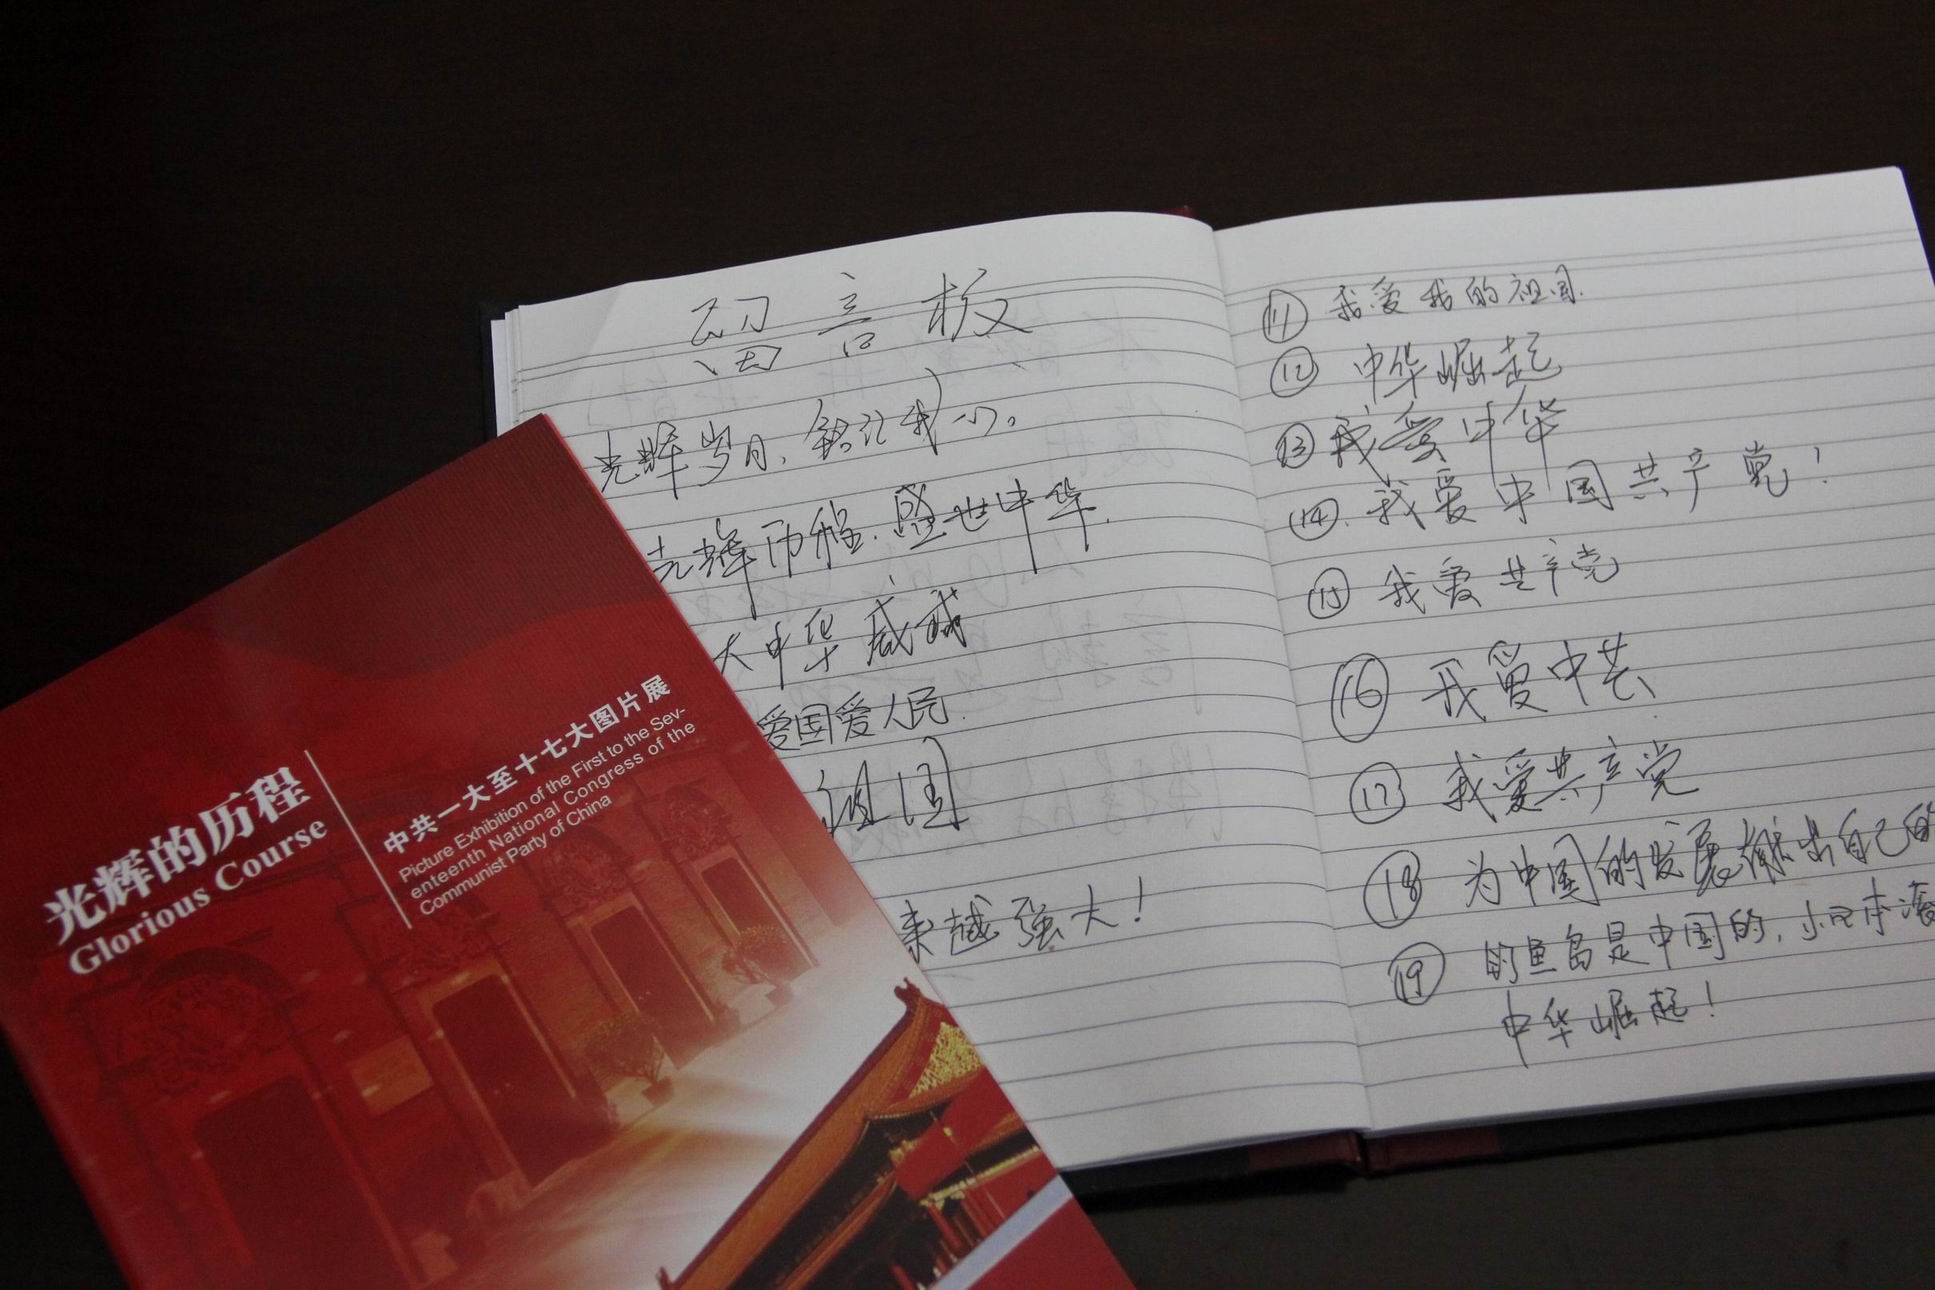 光辉的历程
Glorious Course
中共一大至十七大图片展
Picture Exhibition of the First to the Sev-
enteenth National Congress of the
Communist Party of China
留言板
光辉岁月、
光辉历程.盛世中华.
大中华威武
爱国爱人民.
祖国
来越强大!
⑪ 我爱我的祖国.
⑫ 中华崛起
⑬ 我爱中华
⑭. 我爱中国共产党!
⑮ 我爱共产党
⑯ 我爱中共、
⑰ 我爱共产党
⑱ 为中国的发展献出自己的
⑲ 钓鱼岛是中国的, 小日本滚
中华崛起!